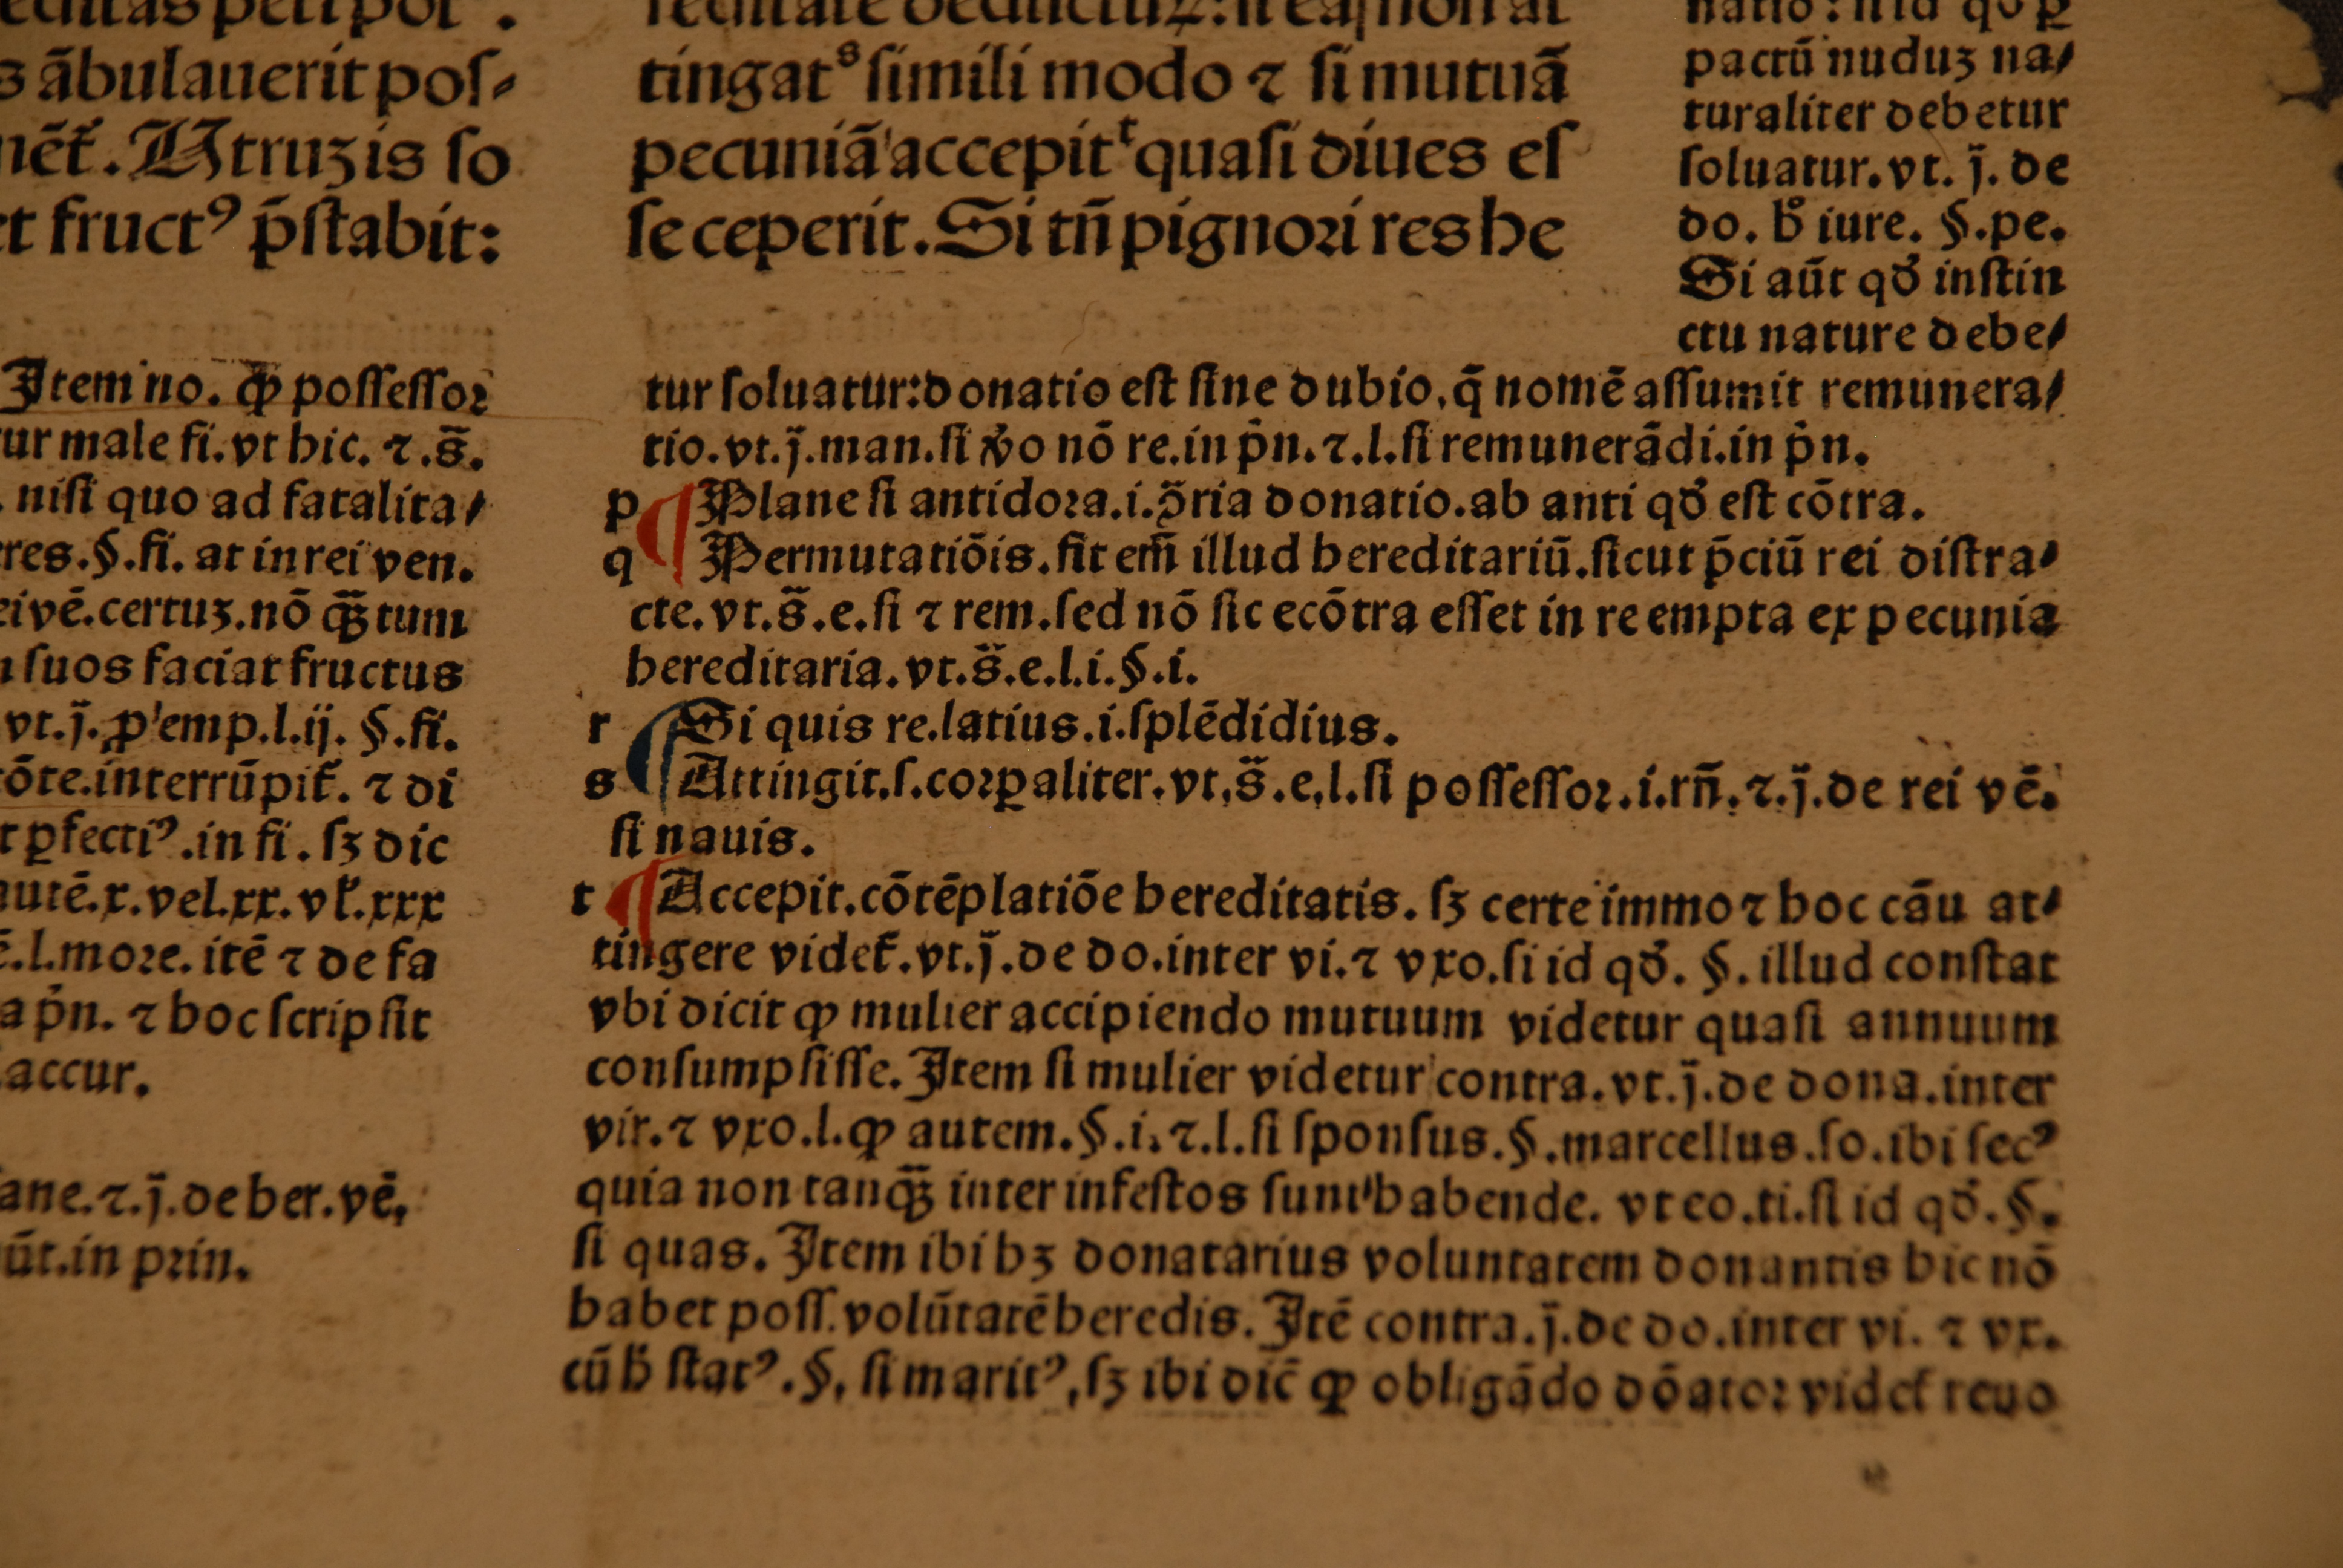 s ãbulauerit poſ⸗
nẽt᷑. Utruʒ is ſo
et fructꝰ p̄ſtabit:
Item no. ꝙ poſſeſſoꝛ
ur male fi. vt hic. ⁊ .s̄.
niſi quo ad fatalita⸗
res. §. fi. at in rei ven.
ei vē. certuʒ. nō q̄ʒ tum
ſuos faciat fructus
vt. j̄. ꝓ emp. l. ij. §. fi.
ōte. interrūpit᷑. ⁊ di
t ꝑfectiꝰ. in fi. ſʒ dic
autē. x. vel. xx. vl̕. xxx
l. moꝛe. itē ⁊ de fa
a p̄n. ⁊ hoc ſcripſit
accur.
ane. ⁊. j̄. de her. vē.
ūt. in pꝛin.
tingatˢ ſimili modo ⁊ ſi mutuã
pecuniã accepitᵗ quaſi diues eſ
ſe ceperit. Si tn̄ pignoꝛi res he
pactū nuduʒ na⸗
turaliter debetur
ſoluatur. vt. j̄. de
do. hͦ iure. §. pe.
Si aūt qδ inſtin
ctu nature debe⸗
tur ſoluatur: donatio eſt ſine dubio, q̄ nomē aſſumit remunera⸗
tio. vt. j̄. man. ſi v̊o nō re. in p̄n. ⁊. l. ſi remunerādi. in p̄n.
p ¶ Plane ſi antidoꝛa. i. ꝯ̄ria donatio. ab anti qδ eſt cōtra.
q Permutatiōis. fit em̄ illud hereditariū. ſicut p̄ciū rei diſtra⸗
cte. vt. s̄. e. ſi ⁊ rem. ſed nō ſic ecōtra eſſet in re empta ex pecunia
hereditaria. vt. s̄. e. l. i. §. i.
r ¶ Si quis re. latius. i. ſplēdidius.
s Attingit. ſ. coꝛꝑaliter. vt. s̄. e. l. ſi poſſeſſoꝛ. i. rn̄. ⁊. j̄. de rei vē.
ſi nauis.
t ¶ Accepit. cōtēplatiōe hereditatis. ſʒ certe immo ⁊ hoc cāu at⸗
tingere videt᷑. vt. j̄. de do. inter vi. ⁊ vxo. ſi id qδ. §. illud conſtat
vbi dicit ꝙ mulier accipiendo mutuum videtur quaſi annuum
conſumpſiſſe. Item ſi mulier videtur contra. vt. j̄. de dona. inter
vir. ⁊ vxo. l. ꝙ autem. §. i. ⁊. l. ſi ſponſus. §. marcellus. ſo. ibi ſecꝰ
quia non tanq̄ʒ inter infeſtos ſunt habende. vt eo. ti. ſi id qδ. §.
ſi quas. Item ibi hʒ donatarius voluntatem donantis hic nō
habet poſſ. volūtatē heredis. Itē contra. j̄. de do. inter vi. ⁊ vx.
cū h̄ ſtatꝰ. §. ſi maritꝰ, ſʒ ibi dic̄ ꝙ obligādo dōatoꝛ videt᷑ reuo